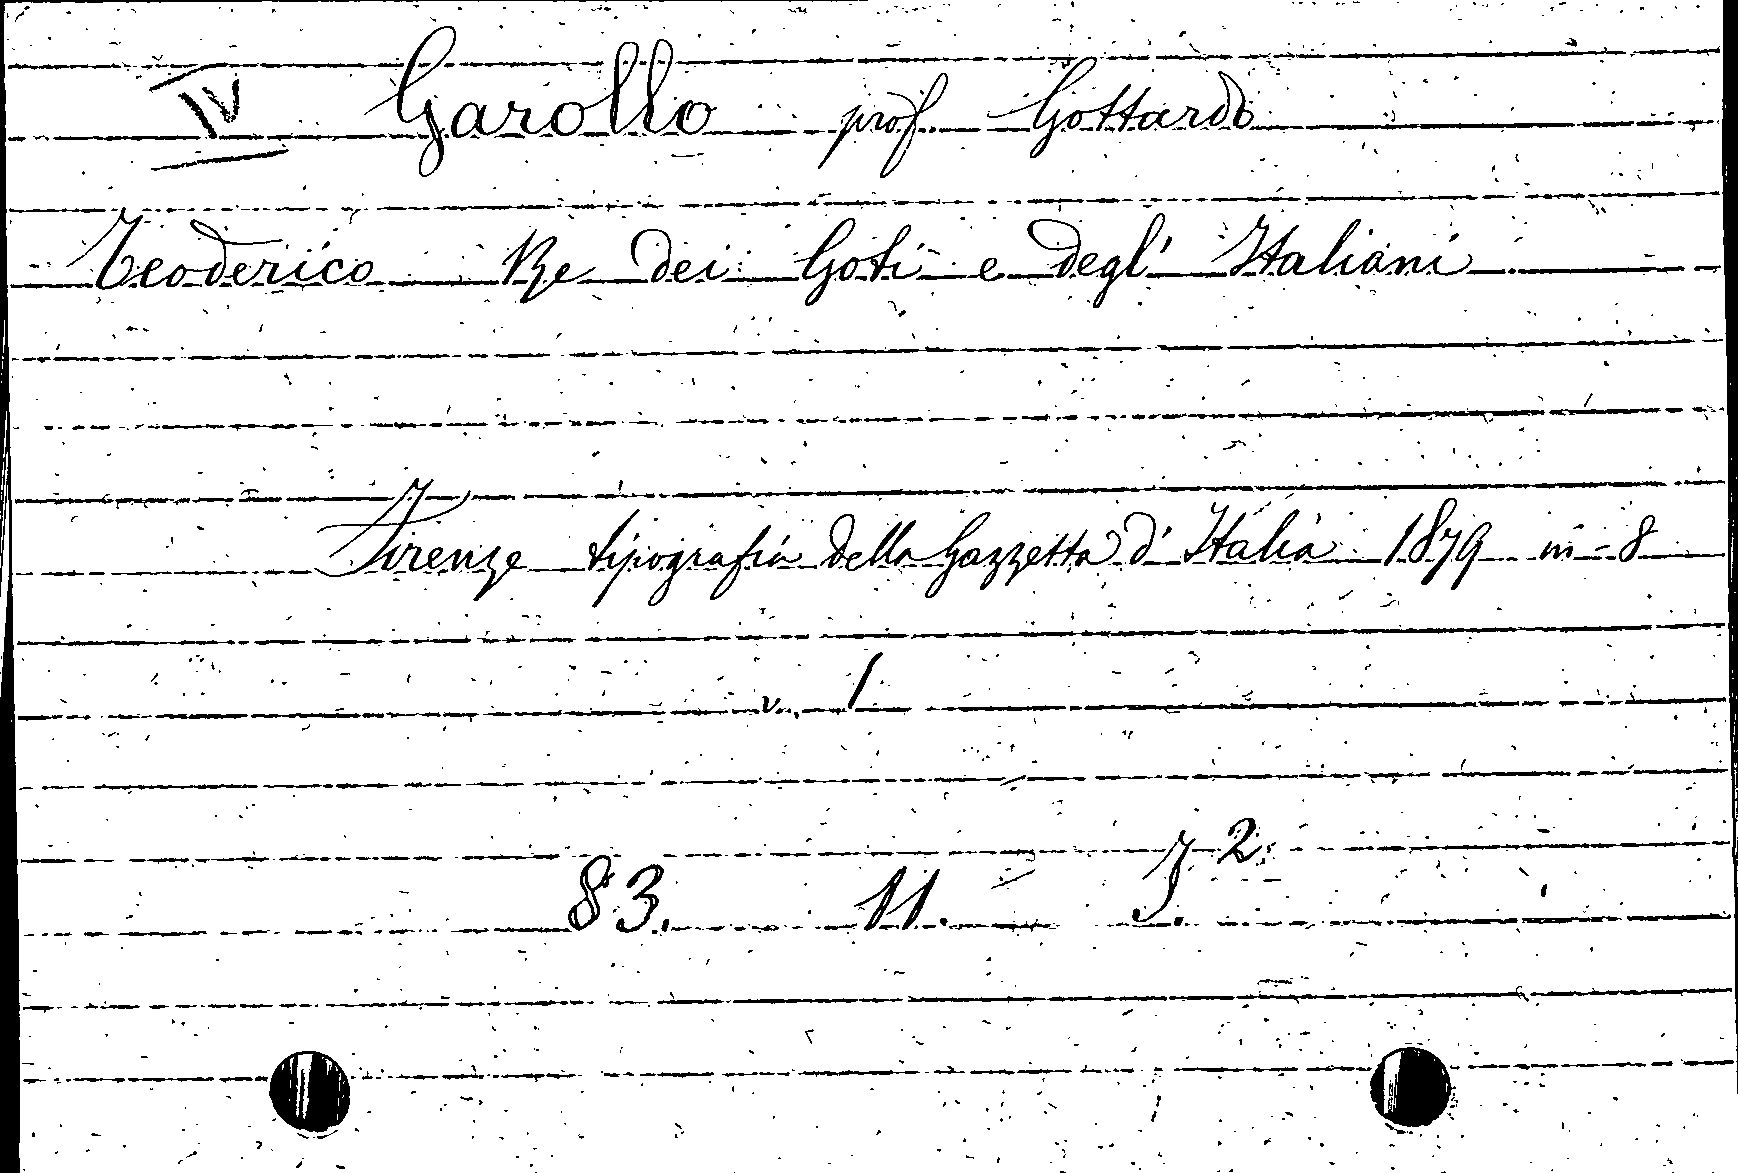 IV Garollo prof. Gottardo
Teoderico Re dei Goti e degl' Italiani
Firenze tipografia della Gazzetta d' Italia 1879 in-8
v. 1
83. 11. J. 2.